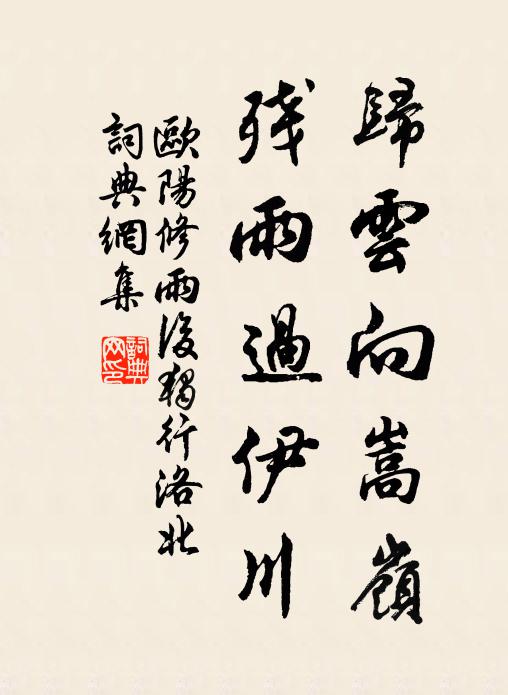 歸雲向嵩嶺
残雨過伊川
歐陽修雨後獨行洛北
詞典網集
詞典网印